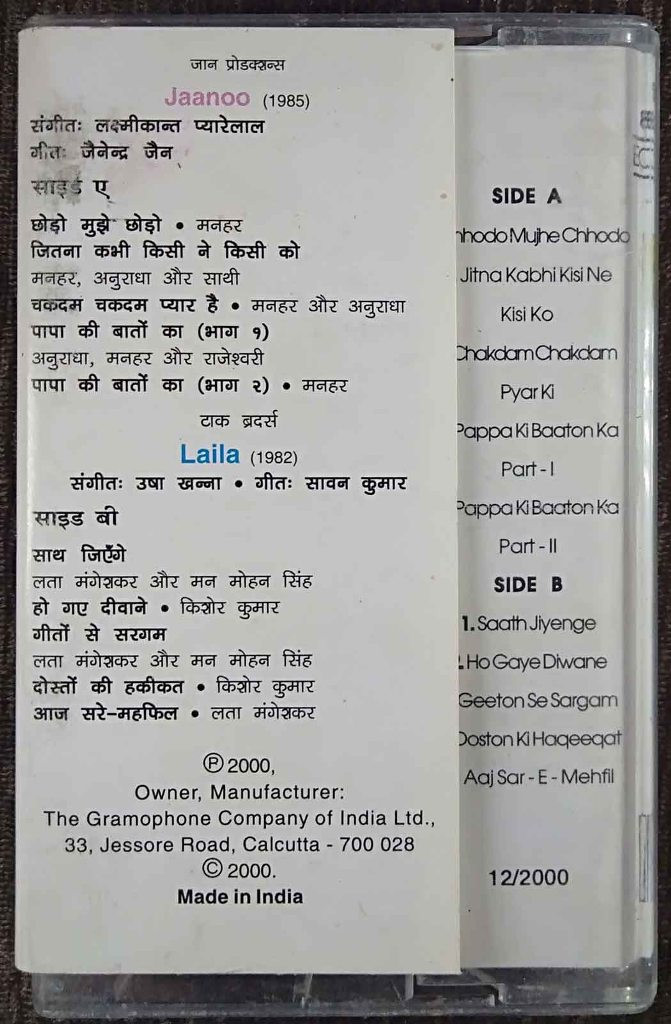 जान प्रोडक्शन्स
Jaanoo (1985)
संगीतः लक्ष्मीकान्त प्यारेलाल
गीतः जैनेन्द्र जैन
साइड ए
छोड़ो मुझे छोड़ो • मनहर
जितना कभी किसी ने किसी को
मनहर, अनुराधा और साथी
चकदम चकदम प्यार है • मनहर और अनुराधा
पापा की बातों का (भाग १)
अनुराधा, मनहर और राजेश्वरी
पापा की बातों का (भाग २) • मनहर
टाक ब्रदर्स
Laila (1982)
संगीतः उषा खन्ना • गीतः सावन कुमार
साइड बी
साथ जिएँगे
लता मंगेशकर और मन मोहन सिंह
हो गए दीवाने • किशोर कुमार
गीतों से सरगम
लता मंगेशकर और मन मोहन सिंह
दोस्तों की हकीकत • किशोर कुमार
आज सरे-महफिल • लता मंगेशकर
Ⓟ 2000,
Owner, Manufacturer:
The Gramophone Company of India Ltd.,
33, Jessore Road, Calcutta - 700 028
© 2000.
Made in India
SIDE A
hhodo Mujhe Chhodo
Jitna Kabhi Kisi Ne
Kisi Ko
Chakdam Chakdam
Pyar Ki
Pappa Ki Baaton Ka
Part - I
Pappa Ki Baaton Ka
Part - II
SIDE B
1. Saath Jiyenge
. Ho Gaye Diwane
Geeton Se Sargam
Doston Ki Haqeeqat
Aaj Sar - E - Mehfil
12/2000